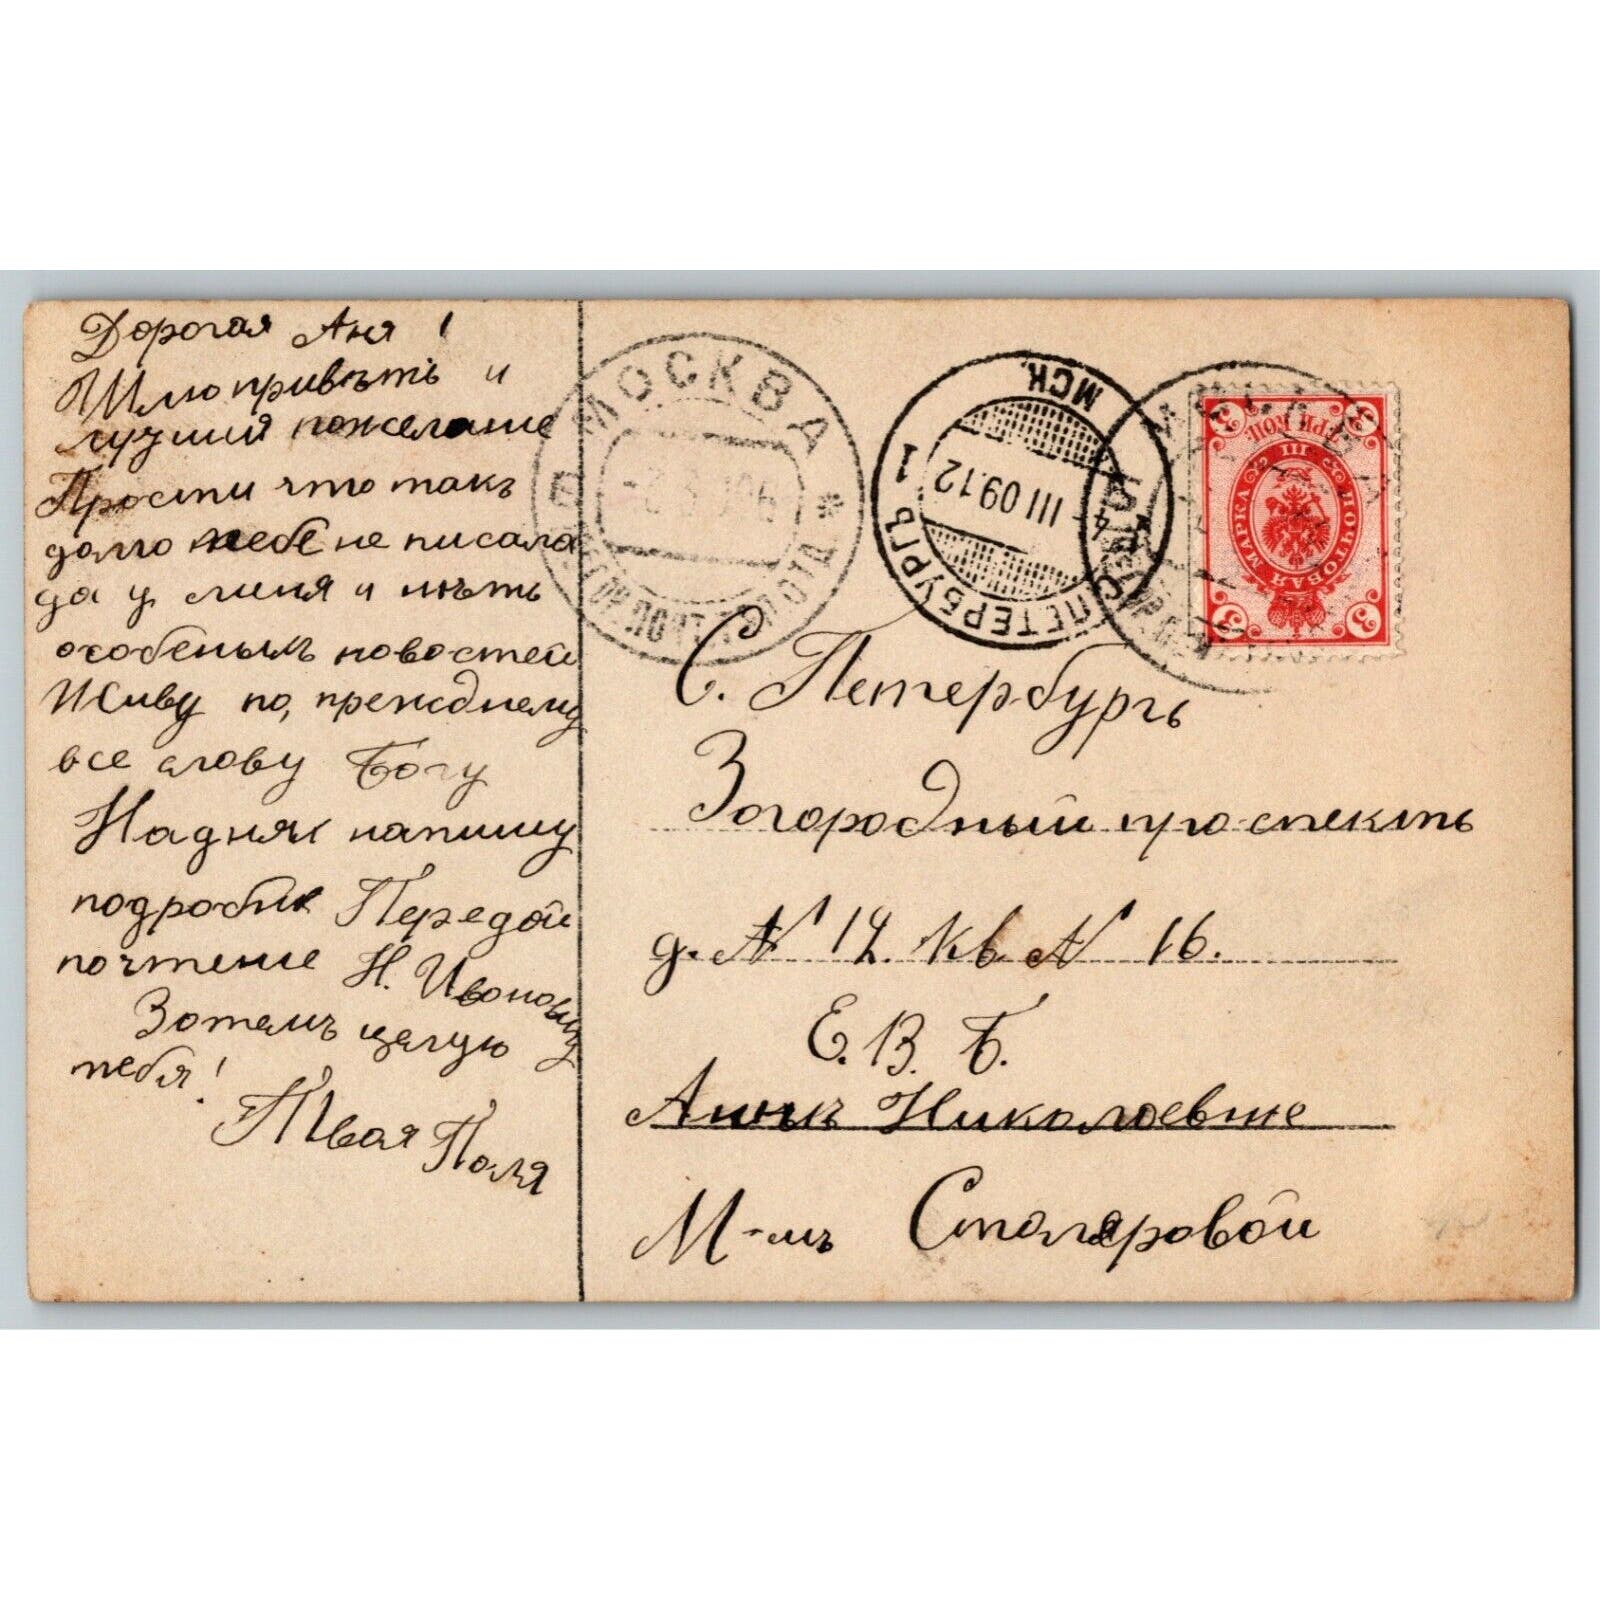 Дорогая Аня!
Шлю привѣть и
лучшия пожелание
Прости что такъ
долго тебе не писала
да у меня и нѣть
особеныхъ новостей
Живу по, прежднему
все слову Богу
На дняхъ напишу
подробнѣ Передой
почтение Н. Ивоновичу
Зотемъ целую
тебя!
Твоя Поля
МОСКВА
С. ПЕТЕРБУРГЪ 1
МСК.
4 III 09.12
ПОЧТОВАЯ МАРКА
III
ТРИ КОП.
3 3
3 3
С. Петербургъ
Зогородный проспектъ
д. № 12. Кв. № 16.
Е. В. Б.
Аннѣ Николоевне
М-мъ Столяровой